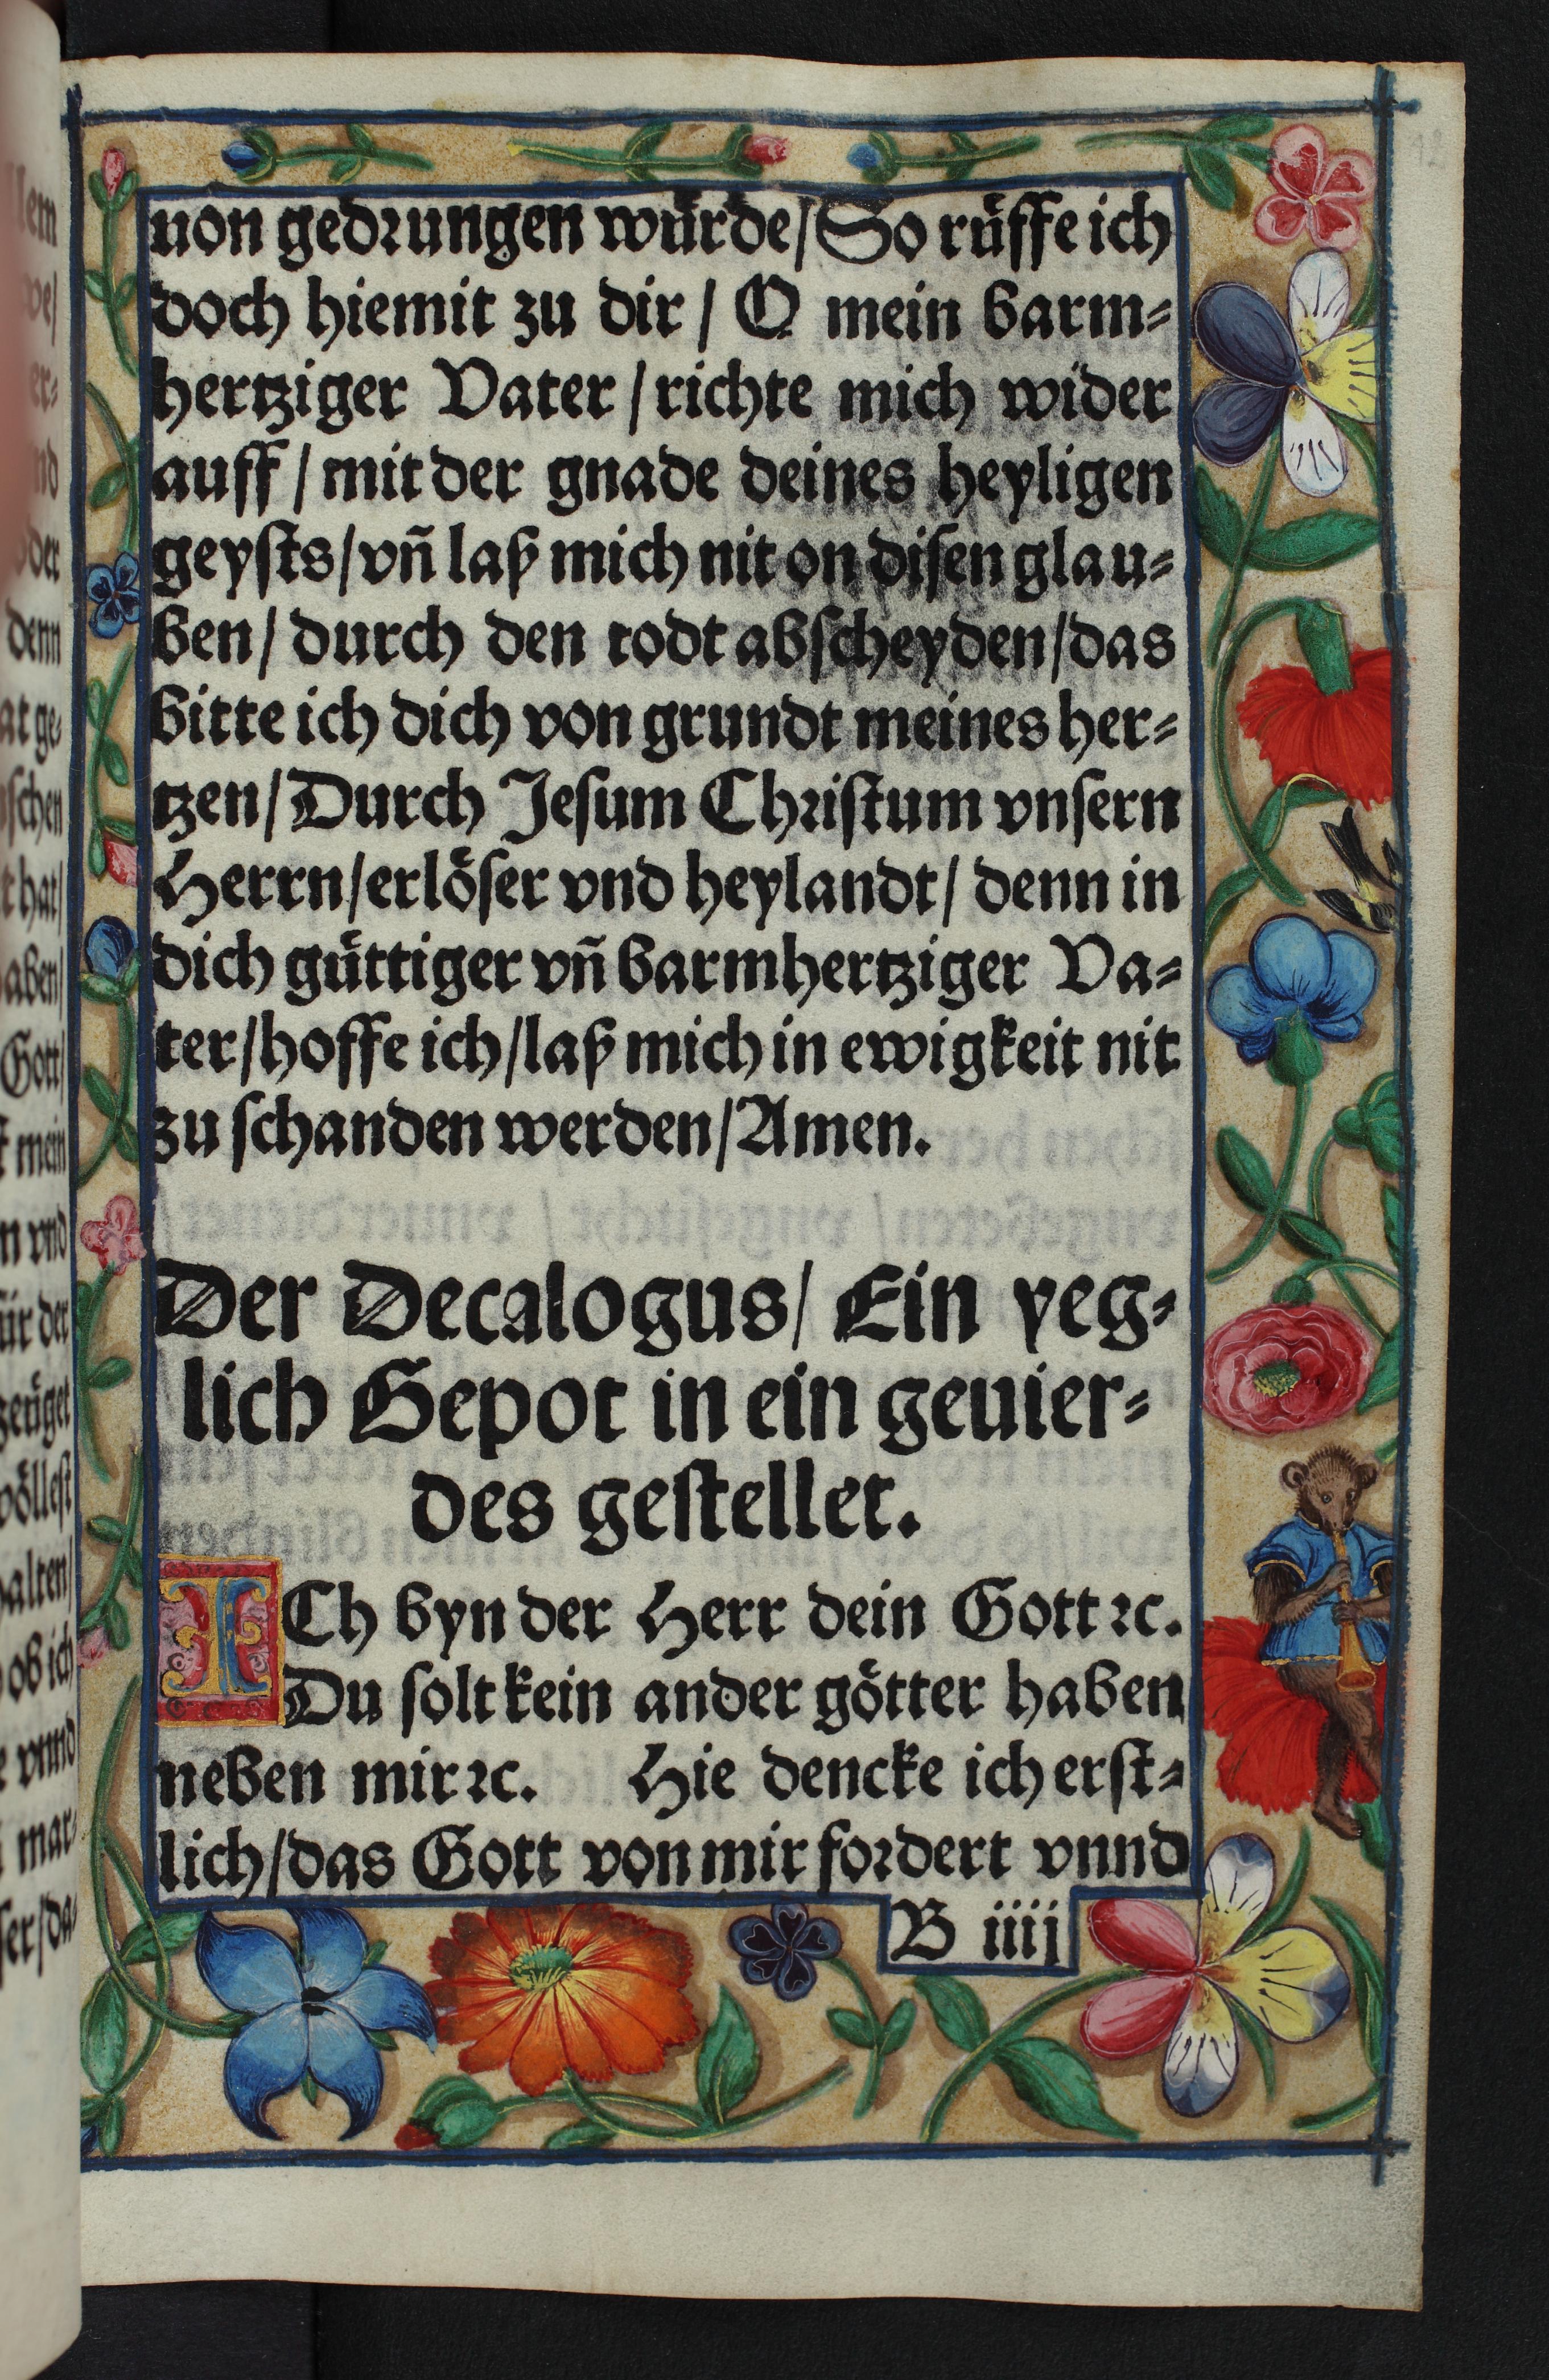 uon gedrungen wuͤrde/So ruͤffe ich
doch hiemit zu dir / O mein barm⸗
hertziger Vater / richte mich wider
auff / mit der gnade deines heyligen
geysts/vñ laß mich nit on disen glau⸗
ben/ durch den todt abscheyden/das
bitte ich dich von grundt meines her⸗
tzen/Durch Jesum Christum vnsern
Herrn/erloͤser vnd heylandt/ denn in
dich guͤttiger vñ barmhertziger Va⸗
ter/hoffe ich/laß mich in ewigkeit nit
zu schanden werden/Amen.
Der Decalogus/ Ein yeg⸗
lich Gepot in ein geuier⸗
des gestellet.
ICh byn der Herr dein Gott ꝛc.
Du solt kein ander goͤtter haben
neben mir ꝛc. Hie dencke ich erst⸗
lich/das Gott von mir fordert vnnd
B iiij